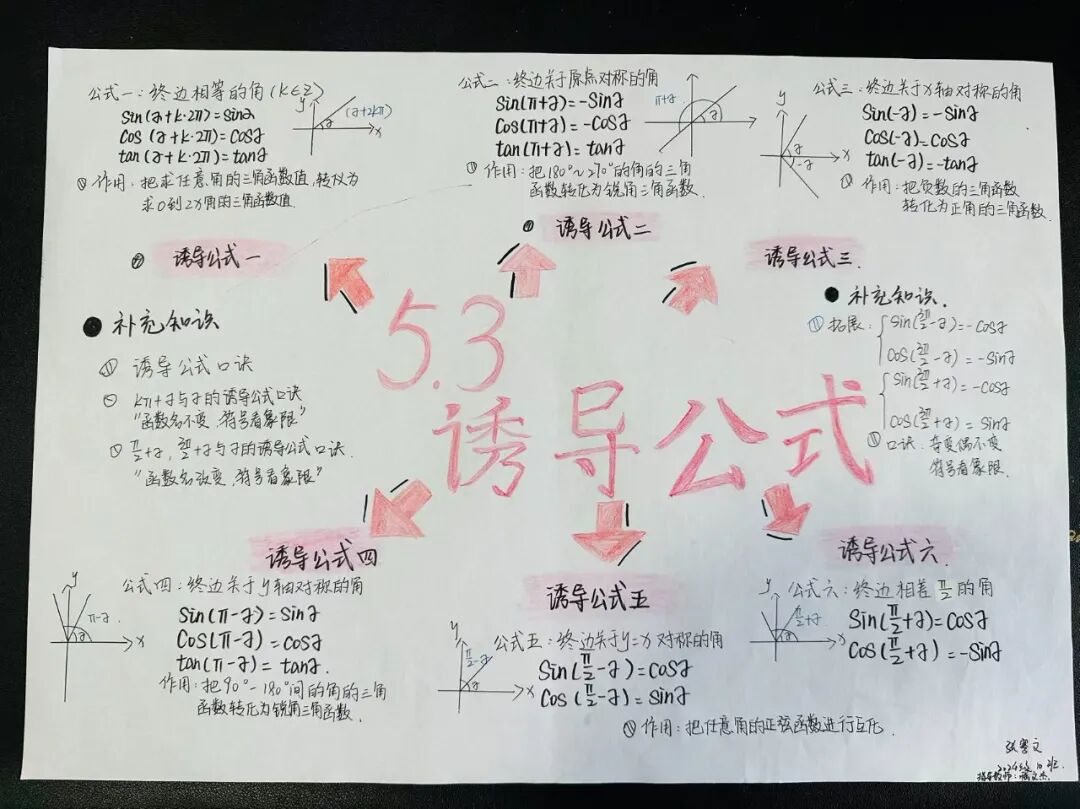 公式一:终边相等的角(K∈Z)
Sin(α+k·2π)=sinα
Cos(α+k·2π)=Cosα
tan(α+k·2π)=tanα
y
(α+2kπ)
α
x
① 作用:把求任意角的三角函数值,转仪为
求0到2π角的三角函数值
诱导公式一
公式二:终边关于原点对称的角
Sin(π+α)=-Sinα
Cos(π+α)=-Cosα
tan(π+α)=tanα
π+α
α
① 作用:把180°~270°的角的三角
函数转化为锐角三角函数.
诱导公式二
公式三:终边关于x轴对称的角
Sin(-α)=-Sinα
Cos(-α)=Cosα
tan(-α)=-tanα
y
α
-α
x
作用:把负数的三角函数
转化为正角的三角函数.
诱导公式三
● 补充知识
⑴ 诱导公式口诀
kπ+α与α的诱导公式口诀
“函数名不变,符号看象限”
② π/2+α, 3π/2+α与α的诱导公式口诀.
“函数名改变,符号看象限”
5.3
诱导公式
● 补充知识.
⑴ 拓展:
Sin(3π/2-α)=-Cosα
Cos(3π/2-α)=-Sinα
Sin(3π/2+α)=-Cosα
Cos(3π/2+α)=Sinα
口诀:奇变偶不变
符号看象限.
诱导公式四
公式四:终边关于y轴对称的角
Sin(π-α)=Sinα
Cos(π-α)=Cosα
tan(π-α)=tanα.
y
π-α
α
x
作用:把90°-180°间的角的三角
函数转化为锐角三角函数.
诱导公式五
公式五:终边关于y=x对称的角
Sin(π/2-α)=Cosα
Cos(π/2-α)=Sinα
y
π/2-α
α
x
⑴ 作用:把任意角的正弦函数进行互化.
诱导公式六
公式六:终边相差π/2的角
Sin(π/2+α)=Cosα
Cos(π/2+α)=-Sinα
y
π/2+α
α
x